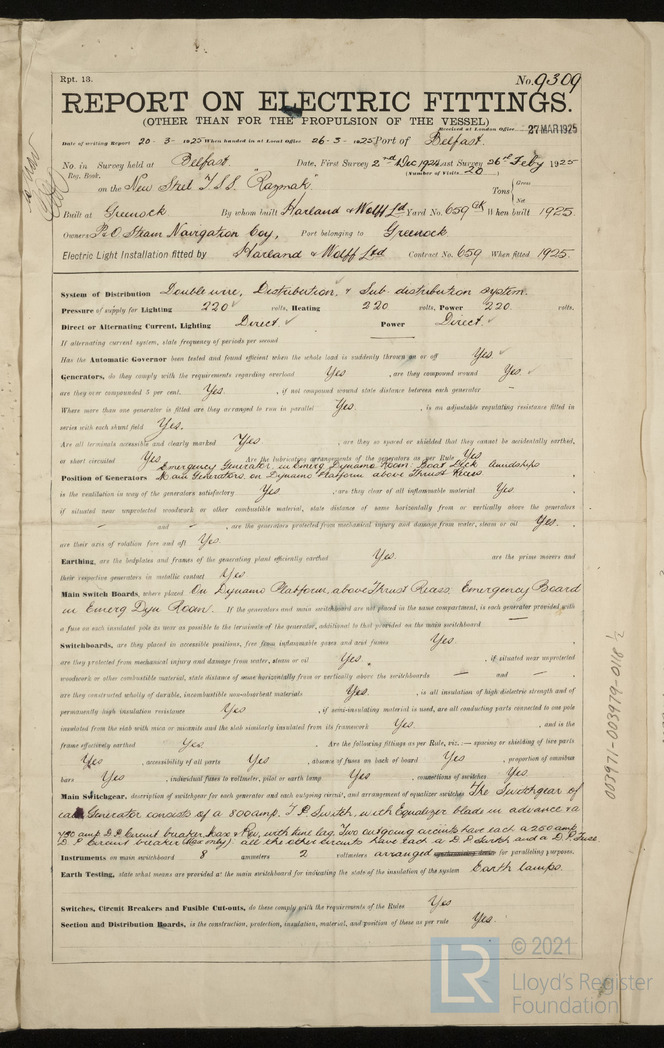 Rpt. 13.
No. 9309
REPORT ON ELECTRIC FITTINGS.
(OTHER THAN FOR THE PROPULSION OF THE VESSEL)
Received at London Office 27 MAR 1925
Date of writing Report 20-3-1925 When handed in at Local Office 26-3-1925 Port of Belfast.
No. in Survey held at Belfast. Date, First Survey 2nd Dec 1924 Last Survey 26th Feby 1925
Reg. Book. (Number of Visits 20)
on the New Steel T.S.S. "Razmak" Tons { Gross
Net
Built at Greenock. By whom built Harland & Wolff Ld Yard No. 659 GK When built 1925.
Owners P&O. Steam Navigation Coy, Port belonging to Greenock.
Electric Light Installation fitted by Harland & Wolff Ltd Contract No. 659 When fitted 1925.
System of Distribution Double wire, Distribution. & Sub distribution system.
Pressure of supply for Lighting 220 volts, Heating 220 volts, Power 220. volts.
Direct or Alternating Current, Lighting Direct Power Direct.
If alternating current system, state frequency of periods per second
Has the Automatic Governor been tested and found efficient when the whole load is suddenly thrown on or off Yes
Generators, do they comply with the requirements regarding overload Yes , are they compound wound Yes.
are they over compounded 5 per cent. Yes. , if not compound wound state distance between each generator —
Where more than one generator is fitted are they arranged to run in parallel Yes. , is an adjustable regulating resistance fitted in
series with each shunt field Yes.
Are all terminals accessible and clearly marked Yes. , are they so spaced or shielded that they cannot be accidentally earthed,
or short circuited Yes Are the lubricating arrangements of the generators as per Rule Yes
Emergency Generator, in Emerg Dynamo Room. Boat Deck Amidships
Position of Generators Main Generators, on Dynamo Platform above Thrust Recess.
is the ventilation in way of the generators satisfactory Yes , are they clear of all inflammable material Yes
if situated near unprotected woodwork or other combustible material, state distance of same horizontally from or vertically above the generators
— and — , are the generators protected from mechanical injury and damage from water, steam or oil Yes.
are their axis of rotation fore and aft Yes.
Earthing, are the bedplates and frames of the generating plant efficiently earthed Yes. are the prime movers and
their respective generators in metallic contact Yes
Main Switch Boards, where placed On Dynamo Platform, above Thrust Recess. Emergency Board
in Emerg Dyn Room. If the generators and main switchboard are not placed in the same compartment, is each generator provided with
a fuse on each insulated pole as near as possible to the terminals of the generator, additional to that provided on the main switchboard —
Switchboards, are they placed in accessible positions, free from inflammable gases and acid fumes Yes.
are they protected from mechanical injury and damage from water, steam or oil Yes. , if situated near unprotected
woodwork or other combustible material, state distance of same horizontally from or vertically above the switchboards — and —
are they constructed wholly of durable, incombustible non-absorbent materials Yes. , is all insulation of high dielectric strength and of
permanently high insulation resistance Yes , if semi-insulating material is used, are all conducting parts connected to one pole
insulated from the slab with mica or micanite and the slab similarly insulated from its framework Yes. , and is the
frame effectively earthed Yes. . Are the following fittings as per Rule, viz.:— spacing or shielding of live parts
Yes , accessibility of all parts Yes , absence of fuses on back of board Yes , proportion of omnibus
bars Yes , individual fuses to voltmeter, pilot or earth lamp Yes , connections of switches Yes.
Main Switchgear, description of switchgear for each generator and each outgoing circuit, and arrangement of equalizer switches The Switchgear of
each Generator consists of a 800 amp. T.P. Switch, with Equalizer blade in advance & a
750 amp D.P. Circuit breaker, Max & Rev, with time lag. Two outgoing circuits have each a 250 amp
D.P. Circuit breaker (Max only). all the other circuits have each a D.P. Switch and a D.P. Fuse
Instruments on main switchboard 8 ammeters 2 voltmeters arranged for paralleling purposes.
Earth Testing, state what means are provided at the main switchboard for indicating the state of the insulation of the system Earth lamps.
Switches, Circuit Breakers and Fusible Cut-outs, do these comply with the requirements of the Rules Yes
Section and Distribution Boards, is the construction, protection, insulation, material, and position of these as per rule Yes.
003971-003979-0118 1/2
LR
© 2021
Lloyd's Register
Foundation